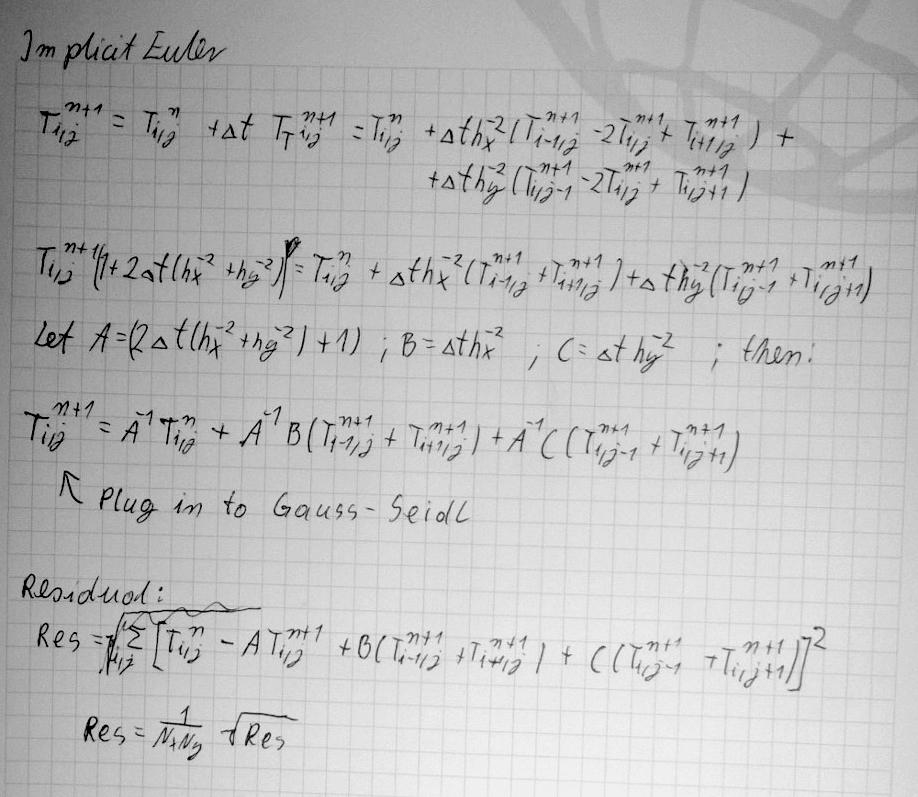 Implicit Euler
T_{i,j}^{n+1} = T_{i,j}^{n} + Δt T_{T i,j}^{n+1} = T_{i,j}^{n} + Δt h_x^{-2} (T_{i-1,j}^{n+1} - 2T_{i,j}^{n+1} + T_{i+1,j}^{n+1}) +
+ Δt h_y^{-2} (T_{i,j-1}^{n+1} - 2T_{i,j}^{n+1} + T_{i,j+1}^{n+1})
T_{i,j}^{n+1} (1 + 2Δt(h_x^{-2} + h_y^{-2})) = T_{i,j}^{n} + Δt h_x^{-2} (T_{i-1,j}^{n+1} + T_{i+1,j}^{n+1}) + Δt h_y^{-2} (T_{i,j-1}^{n+1} + T_{i,j+1}^{n+1})
Let A = (2Δt(h_x^{-2} + h_y^{-2}) + 1) ; B = Δt h_x^{-2} ; C = Δt h_y^{-2} ; then:
T_{i,j}^{n+1} = A^{-1} T_{i,j}^{n} + A^{-1} B (T_{i-1,j}^{n+1} + T_{i+1,j}^{n+1}) + A^{-1} C (T_{i,j-1}^{n+1} + T_{i,j+1}^{n+1})
↖ Plug in to Gauss-Seidl
Residual:
Res = Σ_{i,j} [T_{i,j}^{n} - A T_{i,j}^{n+1} + B (T_{i-1,j}^{n+1} + T_{i+1,j}^{n+1}) + C (T_{i,j-1}^{n+1} + T_{i,j+1}^{n+1})]^2
Res = \frac{1}{N_x N_y} √Res